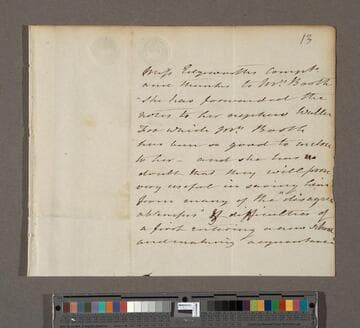 13
Miss Edgeworth's Compts
and thanks to Mrs Booth
She has forwarded the
notes to her nephew Waller
For which Mrs Booth
has been so good to inclose
to her - and she has no
doubt that they will prove
very useful in saving him
from many of the
difficulties of
a first entering a new School
and making acquaintance